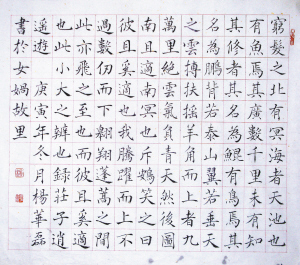 窮髮之北有冥海者天池也
有魚焉其廣數千里未有知
其修者其名為鯤有鳥焉其
名為鵬背若泰山翼若垂天
之雲摶扶搖羊角而上者九
萬里絕雲氣負青天然後圖
南且適南冥也斥鴳笑之曰
彼且奚適也我騰躍而上不
過數仞而下翱翔蓬蒿之間
此亦飛之至也而彼且奚適
也此小大之辯也錄莊子逍
遙遊 庚寅年冬月楊華磊
書於女媧故里